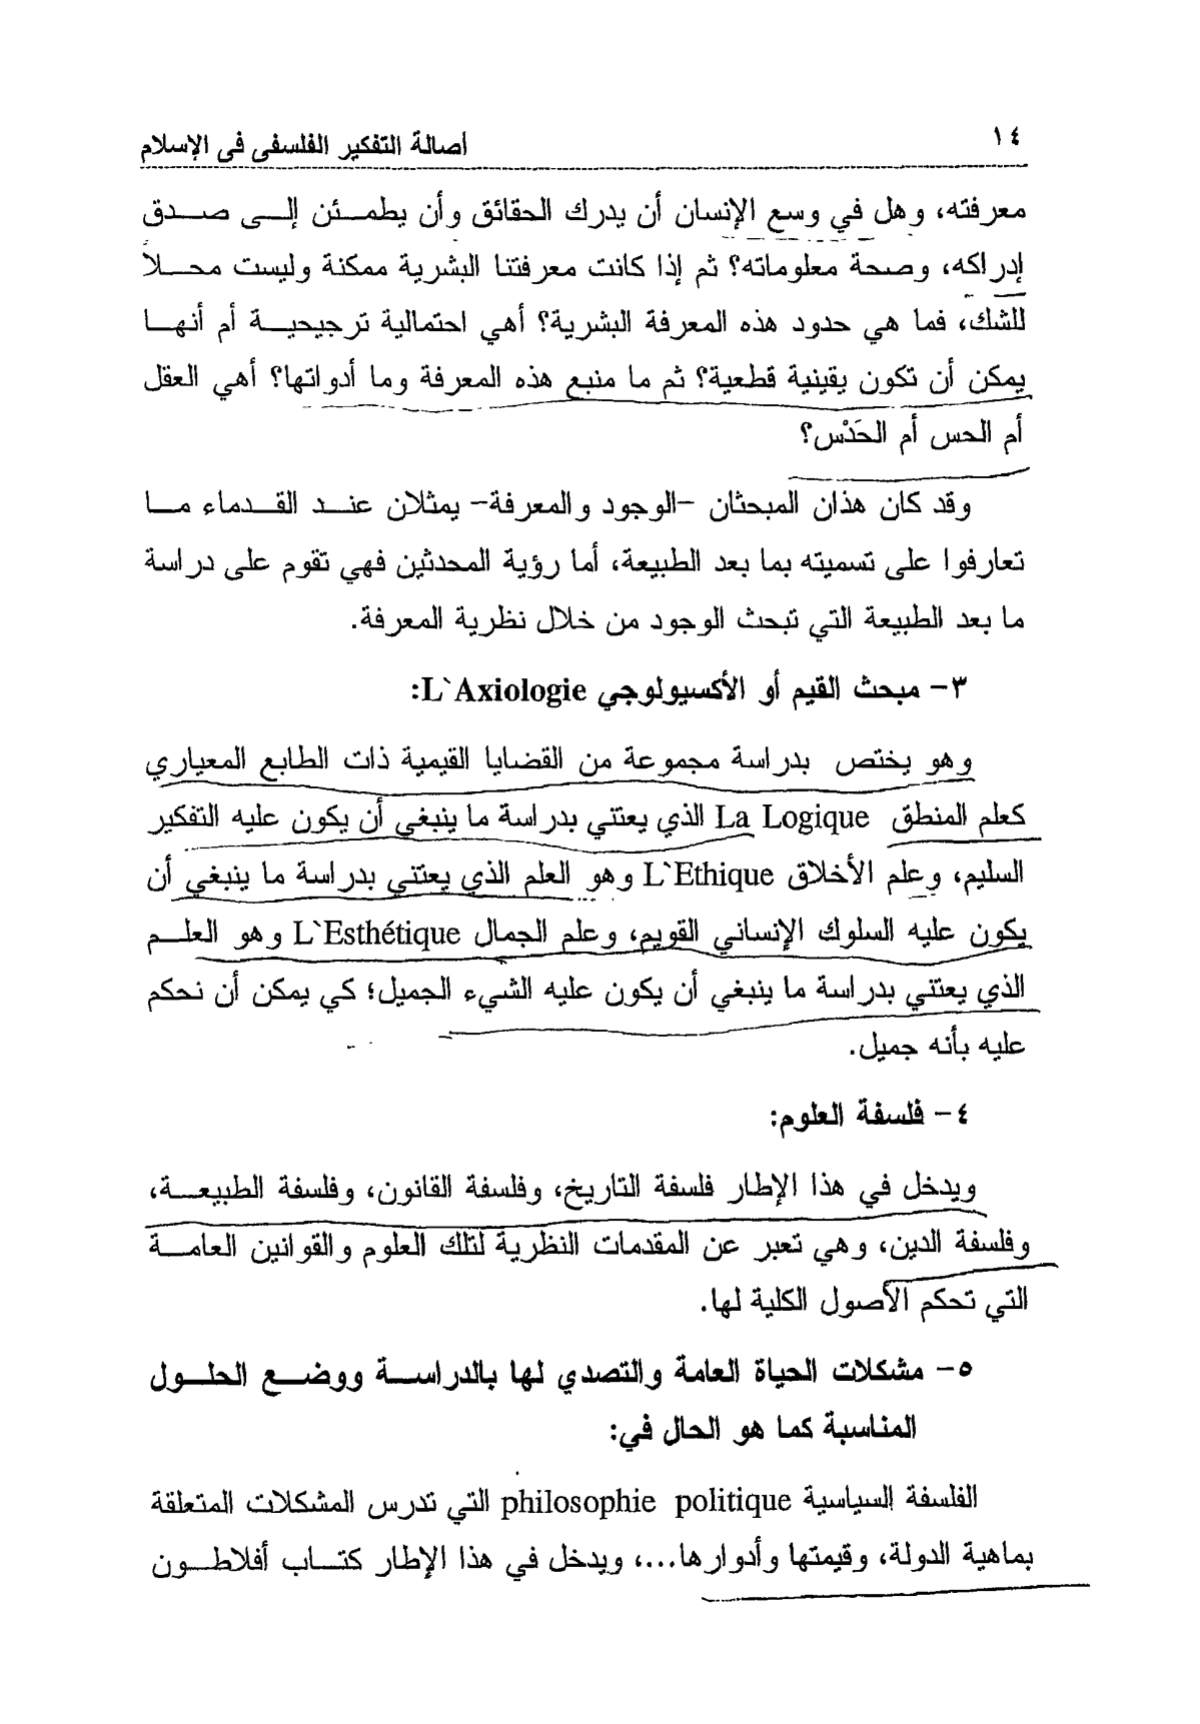 ١٤
أصالة التفكير الفلسفى فى الإسلام
معرفته، وهل في وسع الإنسان أن يدرك الحقائق وأن يطمئن إلى صدق
إدراكه، وصحة معلوماته؟ ثم إذا كانت معرفتنا البشرية ممكنة وليست محلاً
للشك، فما هي حدود هذه المعرفة البشرية؟ أهي احتمالية ترجيحية أم أنها
يمكن أن تكون يقينية قطعية؟ ثم ما منبع هذه المعرفة وما أدواتها؟ أهي العقل
أم الحس أم الحَدْس؟
وقد كان هذان المبحثان -الوجود والمعرفة- يمثلان عند القدماء ما
تعارفوا على تسميته بما بعد الطبيعة، أما رؤية المحدثين فهي تقوم على دراسة
ما بعد الطبيعة التي تبحث الوجود من خلال نظرية المعرفة.
٣- مبحث القيم أو الأكسيولوجي L`Axiologie:
وهو يختص بدراسة مجموعة من القضايا القيمية ذات الطابع المعياري
كعلم المنطق La Logique الذي يعتني بدراسة ما ينبغي أن يكون عليه التفكير
السليم، وعلم الأخلاق L`Ethique وهو العلم الذي يعتني بدراسة ما ينبغي أن
يكون عليه السلوك الإنساني القويم، وعلم الجمال L`Esthétique وهو العلم
الذي يعتني بدراسة ما ينبغي أن يكون عليه الشيء الجميل؛ كي يمكن أن نحكم
عليه بأنه جميل.
٤- فلسفة العلوم:
ويدخل في هذا الإطار فلسفة التاريخ، وفلسفة القانون، وفلسفة الطبيعة،
وفلسفة الدين، وهي تعبر عن المقدمات النظرية لتلك العلوم والقوانين العامة
التي تحكم الأصول الكلية لها.
٥- مشكلات الحياة العامة والتصدي لها بالدراسة ووضع الحلول
المناسبة كما هو الحال في:
الفلسفة السياسية philosophie politique التي تدرس المشكلات المتعلقة
بماهية الدولة، وقيمتها وأدوارها...، ويدخل في هذا الإطار كتاب أفلاطون